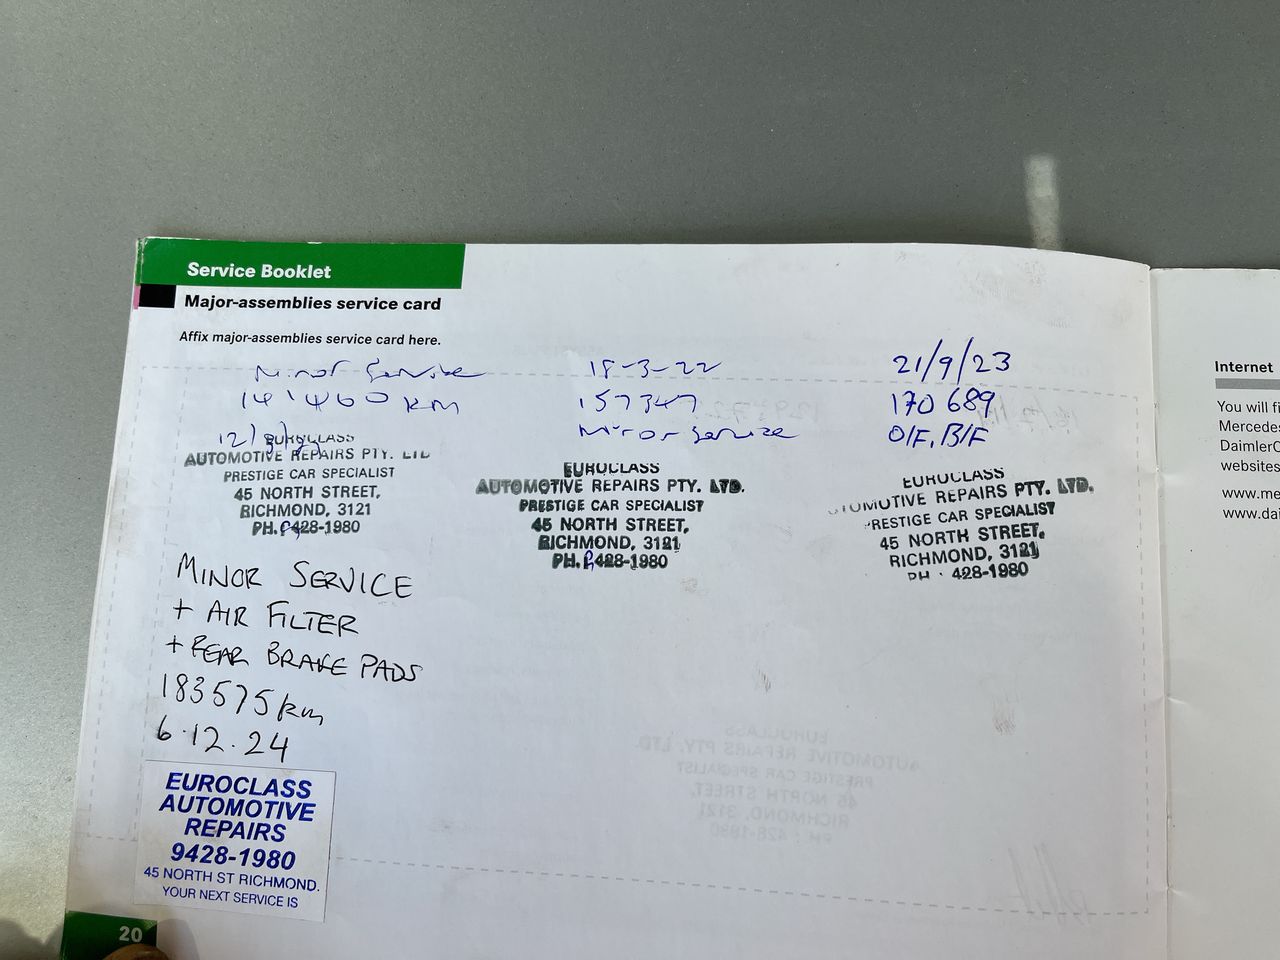 Service Booklet
Major-assemblies service card
Affix major-assemblies service card here.
Minor Service
141460 KM
EUROCLASS
AUTOMOTIVE REPAIRS PTY. LTD
PRESTIGE CAR SPECIALIST
45 NORTH STREET,
RICHMOND, 3121
PH. 9428-1980
18-3-22
157347
Minor Service
EUROCLASS
AUTOMOTIVE REPAIRS PTY. LTD.
PRESTIGE CAR SPECIALIST
45 NORTH STREET,
RICHMOND, 3121
PH. 9428-1980
21/9/23
170 689
O/F, B/F
EUROCLASS
AUTOMOTIVE REPAIRS PTY. LTD.
PRESTIGE CAR SPECIALIST
45 NORTH STREET,
RICHMOND, 3121
PH · 428-1980
MINOR SERVICE
+ AIR FILTER
+ REAR BRAKE PADS
183575 km
6.12.24
EUROCLASS
AUTOMOTIVE
REPAIRS
9428-1980
45 NORTH ST RICHMOND.
YOUR NEXT SERVICE IS
20
Internet
You will
www.
www.